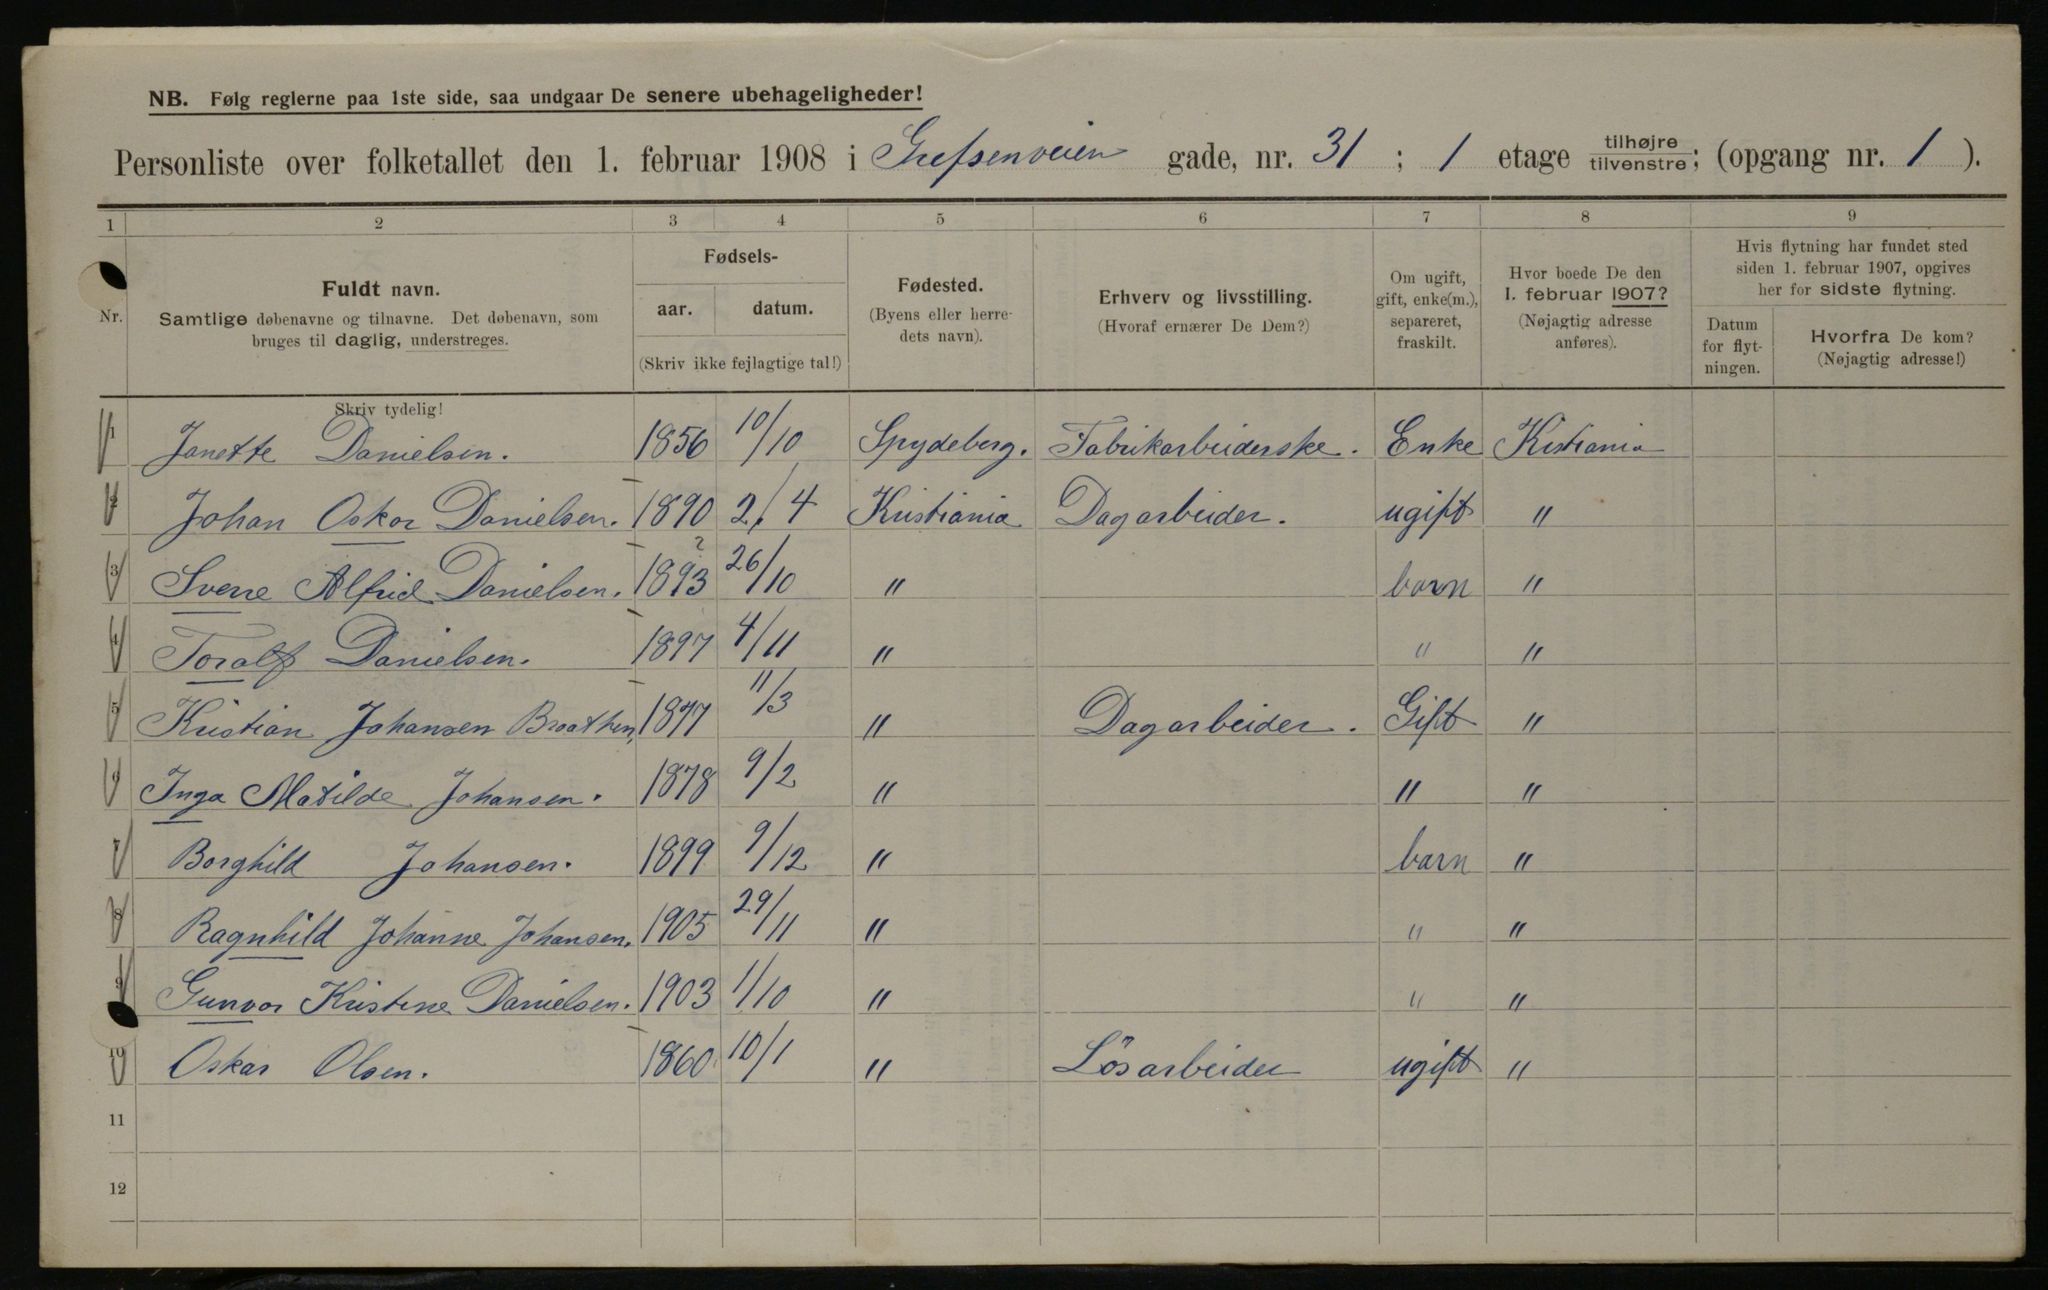 NB. Følg reglerne paa 1ste side, saa undgaar De senere ubehageligheder!
Personliste over folketallet den 1. februar 1908 i Grefsenveien gade, nr. 31 ; 1 etage tilhøjre tilvenstre; (opgang nr. 1 ).
1 2 3 4 5 6 7 8 9
Nr.
Fuldt navn.
Samtlige døbenavne og tilnavne. Det døbenavn, som
bruges til daglig, understreges.
Skriv tydelig!
Fødsels-
aar. datum.
(Skriv ikke fejlagtige tal!)
Fødested.
(Byens eller herre-
dets navn).
Erhverv og livsstilling.
(Hvoraf ernærer De Dem?)
Om ugift,
gift, enke(m.),
separeret,
fraskilt.
Hvor boede De den
1. februar 1907?
(Nøjagtig adresse
anføres).
Hvis flytning har fundet sted
siden 1. februar 1907, opgives
her for sidste flytning.
Datum
for flyt-
ningen.
Hvorfra De kom?
(Nøjagtig adresse!)
1 Janette Danielsen. 1856 10/10 Spydeberg. Fabrikarbeiderske. Enke Kistiania
2 Johan Oskar Danielsen. 1890 2/4 Kristiania Dagarbeider. ugift "
3 Sverre Alfrid Danielsen. 1893 ? 26/10 " barn "
4 Toralf Danielsen. 1897 4/11 " " "
5 Kristian Johansen Braathen, 1877 11/3 " Dagarbeider. Gift "
6 Inga Matilde Johansen. 1878 9/2 " " "
7 Borghild Johansen. 1899 9/12 " barn "
8 Ragnhild Johanne Johansen. 1905 29/11 " " "
9 Gunvor Kristine Danielsen. 1903 1/10 " " "
10 Oskar Olsen. 1860 10/1 " Lösarbeider ugift "
11
12